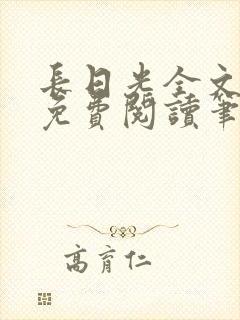 長日光全文
免費閱讀筆
高育仁